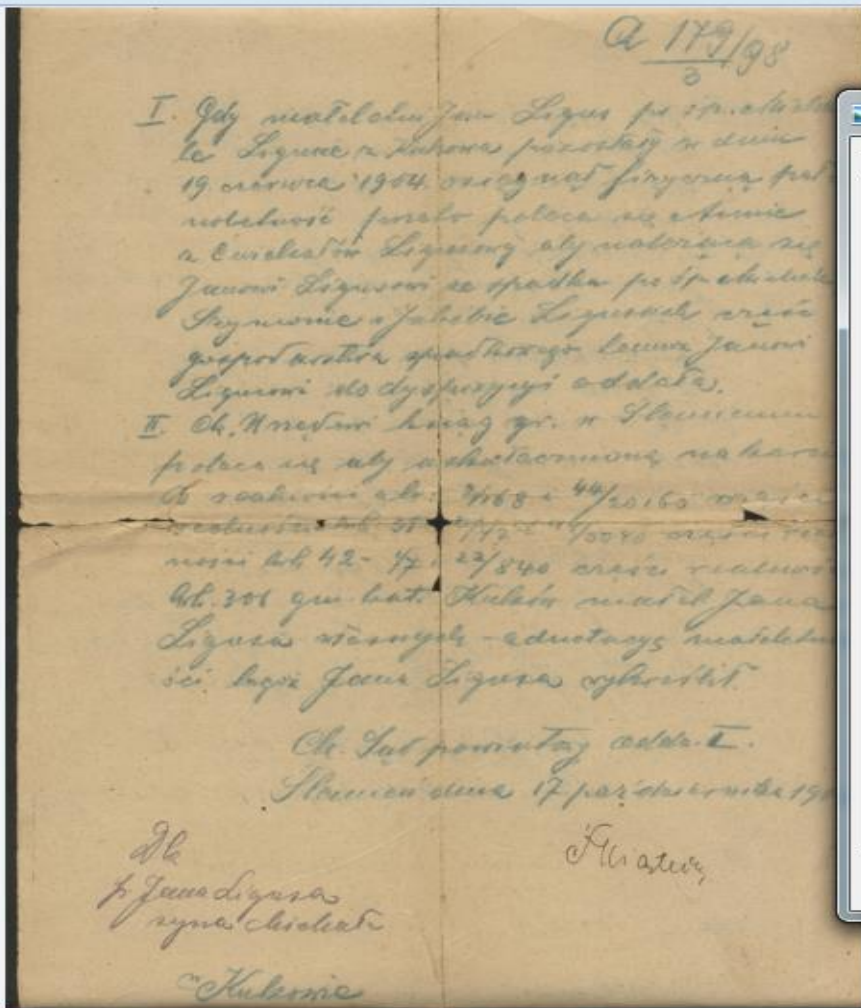 A 179/98
3
I. Gdy małoletni Jan Ligus po śp. Micha
le Ligusie z Kukowa pozostały w dniu
19 czerwca 1904 osiągnął fizyczną peł
noletność przeto poleca się Annie
z Ligusowej aby należącą się
Janowi Ligusowi ze spadku po śp. Michale
Szymonie i Jakóbie Ligusach część
gospodarstwa spadkowego temuż Janowi
Ligusowi do dyspozycyi oddała.
II. Ck. Urzędowi ksiąg gr. w Ślemieniu
poleca się aby uskutecznioną na karcie
B realności 2/168 i 44/20160 części
realności lwh.
ności lwh 42 - 1/7 i 22/840 części realności
lwh. 301 gm. kat. Kuków małol. Jana
Ligusa własnych - adnotacyę małoletno
ści tegoż Jana Ligusa wykreślił.
Ck. Sąd powiatowy oddz. I.
Ślemień dnia 17 października 19
Dla
p. Jana Ligusa
syna Michała
w Kukowie